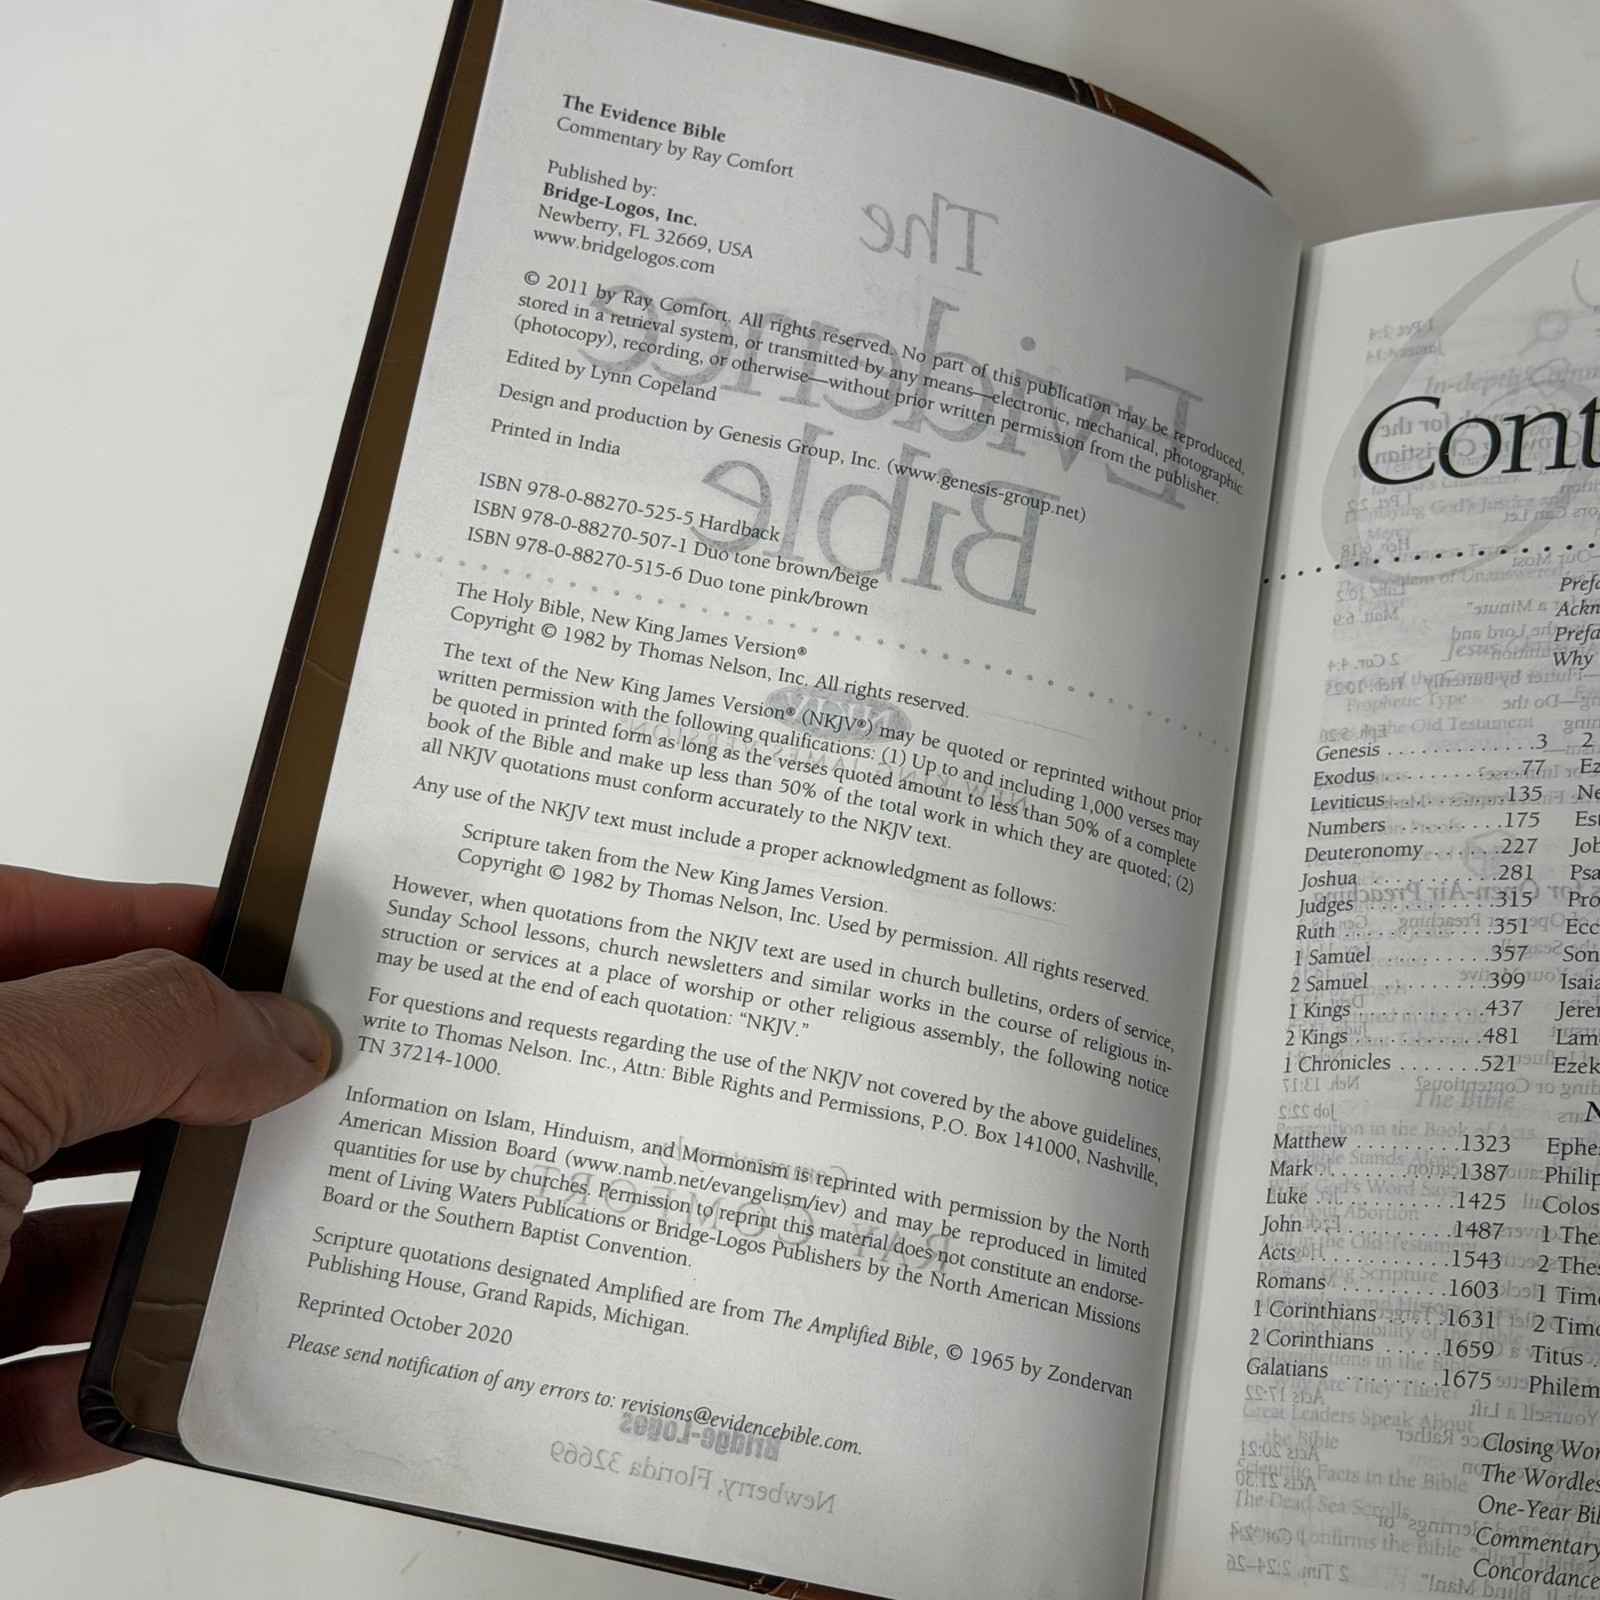 The Evidence Bible
Commentary by Ray Comfort
Published by:
Bridge-Logos, Inc.
Newberry, FL 32669, USA
www.bridgelogos.com
© 2011 by Ray Comfort. All rights reserved. No part of this publication may be reproduced,
stored in a retrieval system, or transmitted by any means—electronic, mechanical, photographic
(photocopy), recording, or otherwise—without prior written permission from the publisher.
Edited by Lynn Copeland
Design and production by Genesis Group, Inc. (www.genesis-group.net)
Printed in India
ISBN 978-0-88270-525-5 Hardback
ISBN 978-0-88270-507-1 Duo tone brown/beige
ISBN 978-0-88270-515-6 Duo tone pink/brown
The Holy Bible, New King James Version®
Copyright © 1982 by Thomas Nelson, Inc. All rights reserved.
The text of the New King James Version® (NKJV®) may be quoted or reprinted without prior
written permission with the following qualifications: (1) Up to and including 1,000 verses may
be quoted in printed form as long as the verses quoted amount to less than 50% of a complete
book of the Bible and make up less than 50% of the total work in which they are quoted; (2)
all NKJV quotations must conform accurately to the NKJV text.
Any use of the NKJV text must include a proper acknowledgment as follows:
Scripture taken from the New King James Version.
Copyright © 1982 by Thomas Nelson, Inc. Used by permission. All rights reserved.
However, when quotations from the NKJV text are used in church bulletins, orders of service,
Sunday School lessons, church newsletters and similar works in the course of religious in-
struction or services at a place of worship or other religious assembly, the following notice
may be used at the end of each quotation: “NKJV.”
For questions and requests regarding the use of the NKJV not covered by the above guidelines,
write to Thomas Nelson. Inc., Attn: Bible Rights and Permissions, P.O. Box 141000, Nashville,
TN 37214-1000.
Information on Islam, Hinduism, and Mormonism is reprinted with permission by the North
American Mission Board (www.namb.net/evangelism/iev) and may be reproduced in limited
quantities for use by churches. Permission to reprint this material does not constitute an endorse-
ment of Living Waters Publications or Bridge-Logos Publishers by the North American Missions
Board or the Southern Baptist Convention.
Scripture quotations designated Amplified are from The Amplified Bible, © 1965 by Zondervan
Publishing House, Grand Rapids, Michigan.
Reprinted October 2020
Please send notification of any errors to: revisions@evidencebible.com.
Cont
Prefa
Ackn
Prefa
Why
Genesis . . . . . . . . . . . .3 2
Exodus . . . . . . . . . . .77 Ez
Leviticus . . . . . . . . .135 Ne
Numbers . . . . . . . . .175 Est
Deuteronomy . . . . . .227 Job
Joshua . . . . . . . . . . .281 Psa
Judges . . . . . . . . . . .315 Pro
Ruth . . . . . . . . . . . .351 Ecc
1 Samuel . . . . . . . . .357 Son
2 Samuel . . . . . . . . .399 Isaia
1 Kings . . . . . . . . . .437 Jerer
2 Kings . . . . . . . . . .481 Lame
1 Chronicles . . . . . . .521 Ezek
N
Matthew . . . . . . . . .1323 Ephes
Mark . . . . . . . . . . .1387 Philip
Luke . . . . . . . . . . .1425 Colos
John . . . . . . . . . . .1487 1 Thes
Acts . . . . . . . . . . .1543 2 Thes
Romans . . . . . . . . .1603 1 Timo
1 Corinthians . . . . . .1631 2 Timo
2 Corinthians . . . . . .1659 Titus .
Galatians . . . . . . . .1675 Philem
Closing Wor
The Wordles
One-Year Bil
Commentary
Concordance